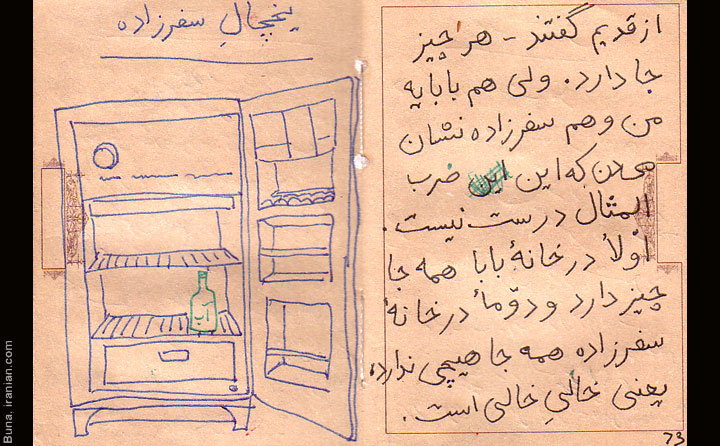 یخچالِ سفرزاده
از قدیم گفتند - هر چیز
جا دارد. ولی هم بابایه
من و هم سفرزاده نشان
میدن که این این ضرب
المثال درست نیست.
اوّلاً در خانهٔ بابا همه جا
چیز دارد و دوّماً در خانهٔ
سفرزاده همه جا هیچی ندارد،
یعنی خالیِ خالی است.
73
Buna, iranian.com